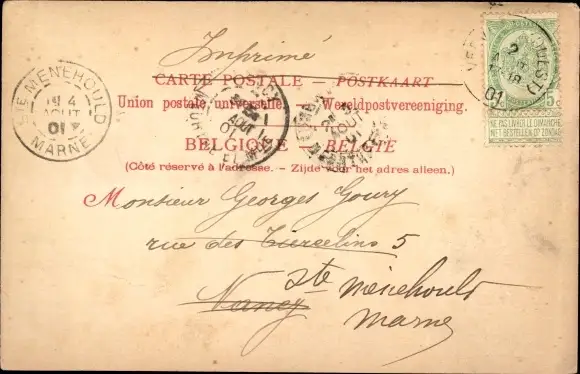 Imprimé
CARTE POSTALE – POSTKAART
Union postale universelle. – Wereldpostvereeniging.
BELGIQUE – BELGIË
(Côté réservé à l'adresse. – Zijde voor het adres alleen.)
Monsieur Georges Goury
rue des Tiercelins 5
Nancy
Ste Menehould
Marne
STE MENEHOULD
4
AOUT
01
MARNE
AOUT
01
AOUT
(OUEST)
2
01
5
NE PAS LIVRER LE DIMANCHE
NIET BESTELLEN OP ZONDAG